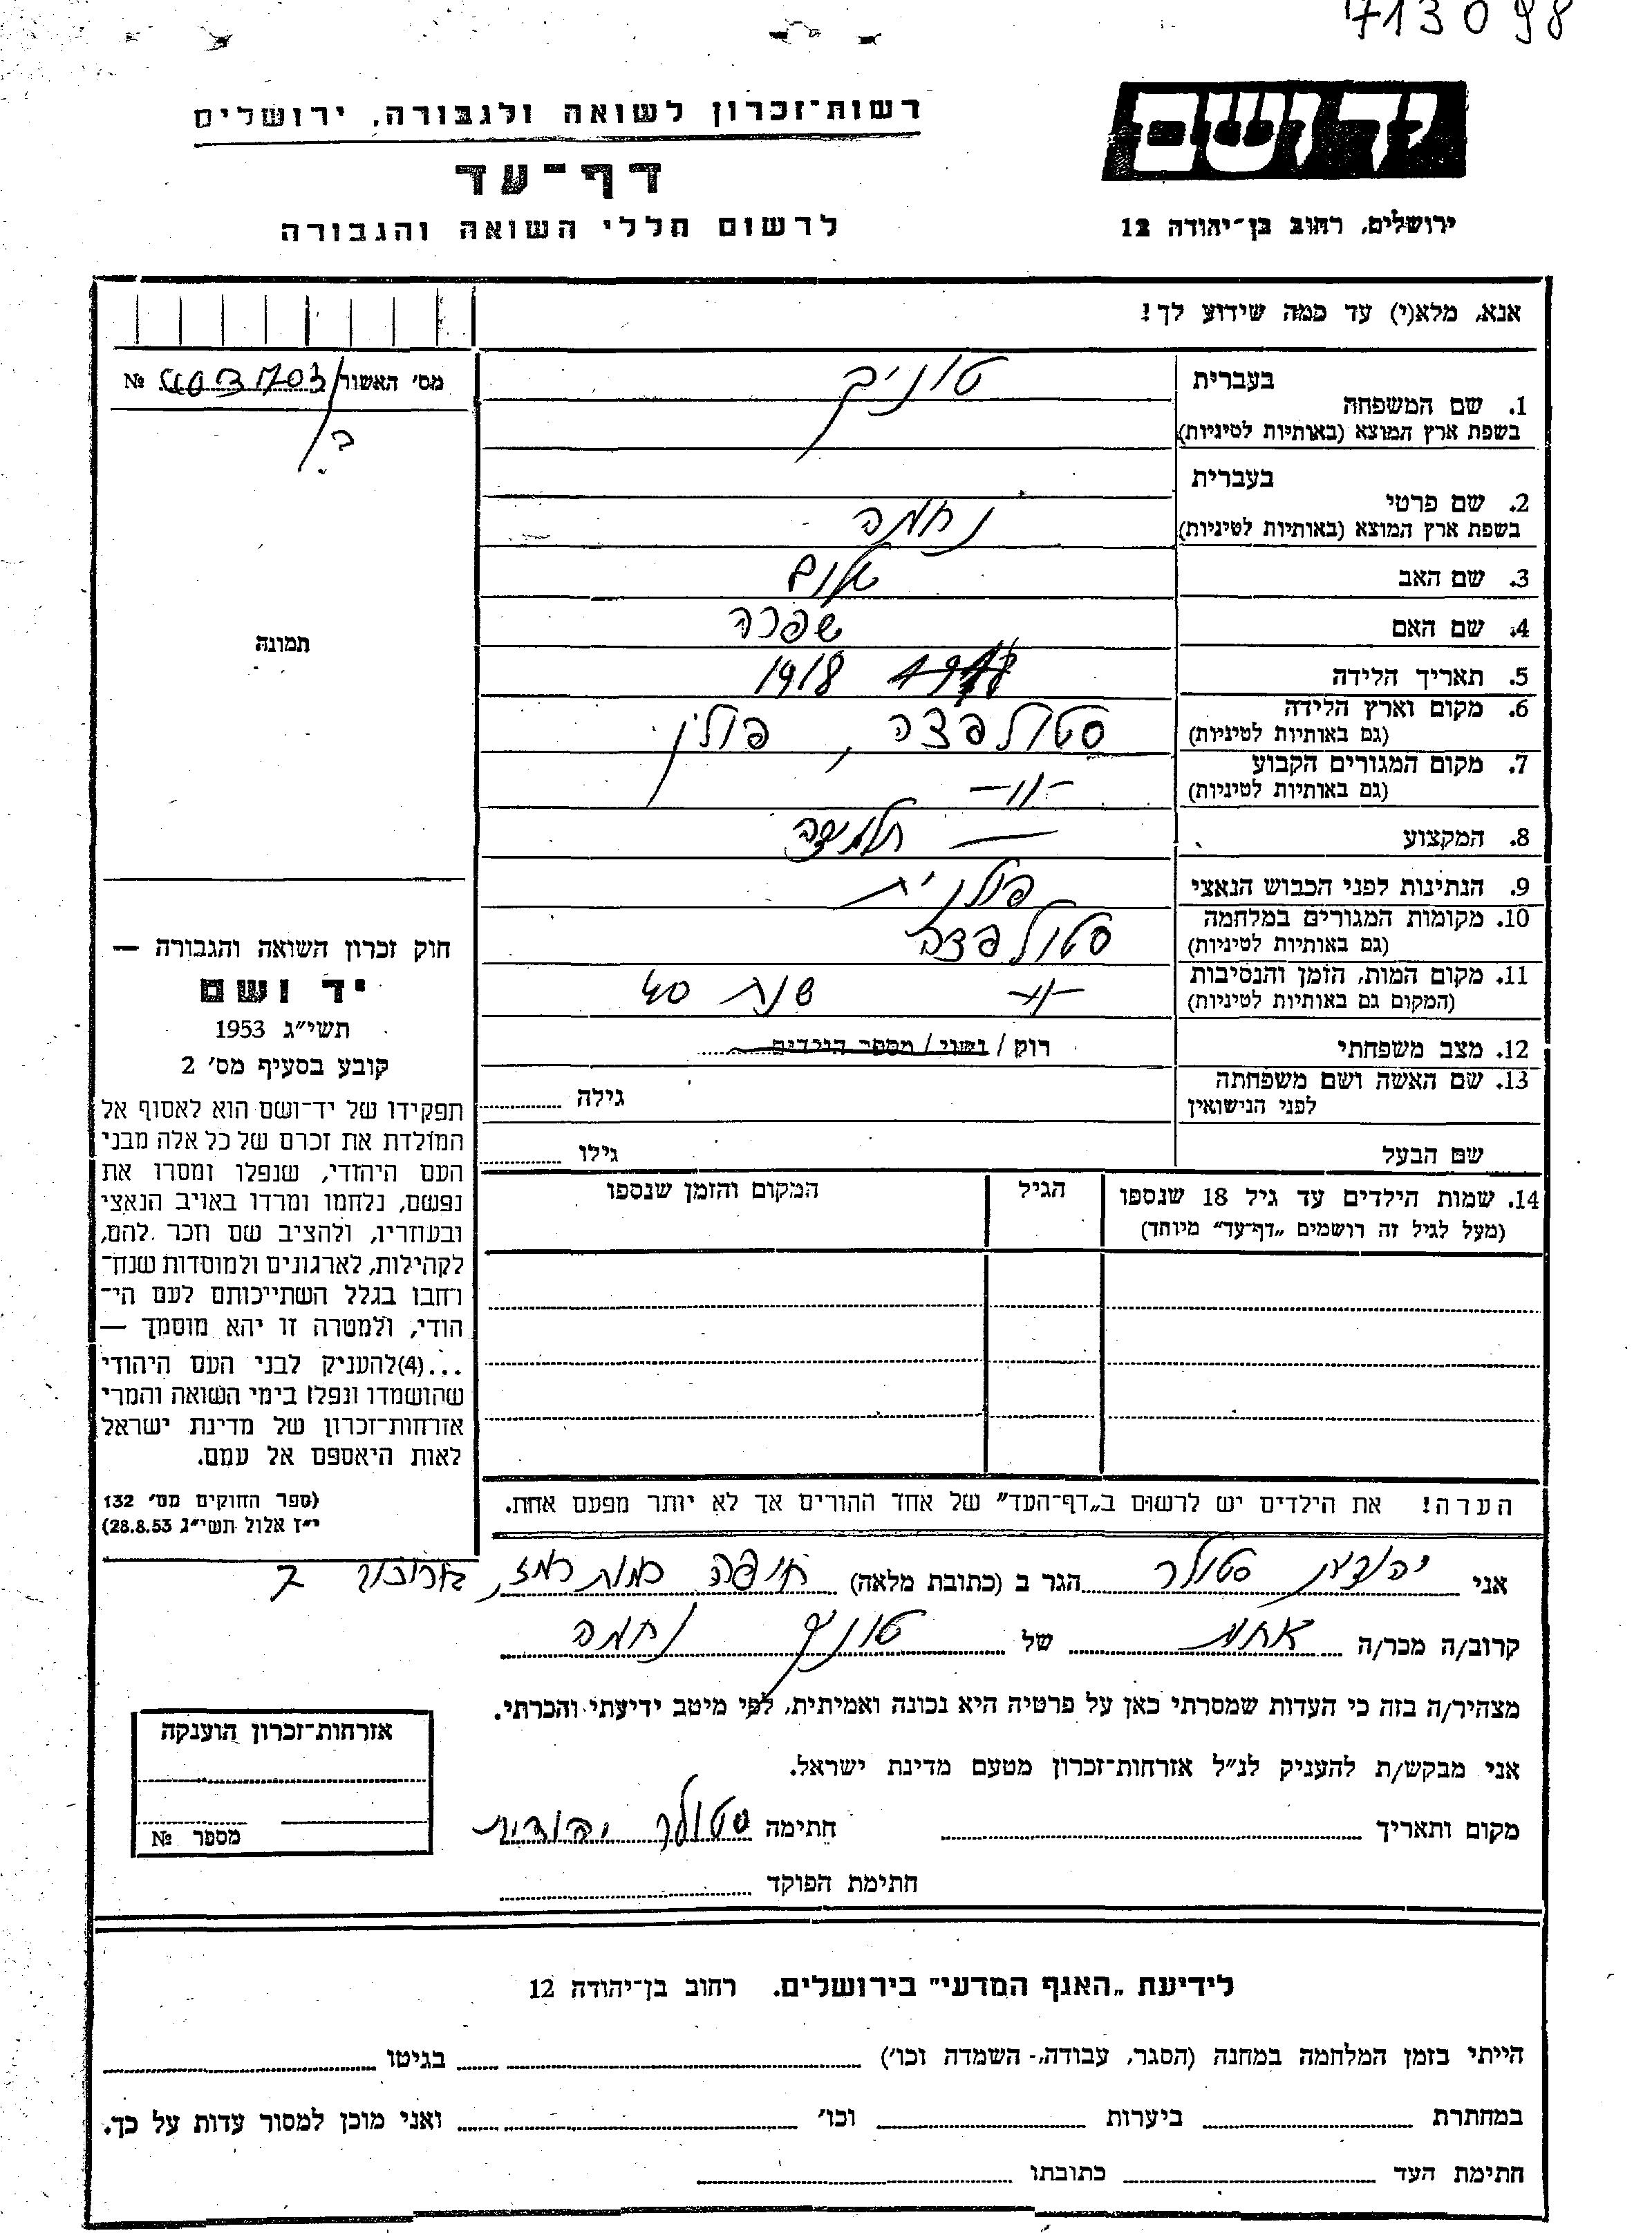 713098
רשות־זכרון לשואה ולגבורה, ירושלים
דף־עד
לרשום חללי השואה והגבורה
יד ושם
ירושלים, רחוב בן־יהודה 12
אנא, מלא(י) עד כמה שידוע לך!
מס׳ האשור №
1. שם המשפחה בעברית
בשפת ארץ המוצא (באותיות לטיניות)
2. שם פרטי בעברית
בשפת ארץ המוצא (באותיות לטיניות) נחמה
3. שם האב שלום
4. שם האם שפרה
5. תאריך הלידה 1918
6. מקום וארץ הלידה סטולפצה, פולין
(גם באותיות לטיניות)
7. מקום המגורים הקבוע -״-
(גם באותיות לטיניות)
8. המקצוע — תלמידה
9. הנתינות לפני הכבוש הנאצי פולנית
10. מקומות המגורים במלחמה סטולפצה
(גם באותיות לטיניות)
11. מקום המות, הזמן והנסיבות -״- שנת 40
(המקום גם באותיות לטיניות)
12. מצב משפחתי רוק / נשוי / מספר הילדים
13. שם האשה ושם משפחתה גילה
לפני הנישואין
שם הבעל גילו
14. שמות הילדים עד גיל 18 שנספו הגיל המקום והזמן שנספו
(מעל לגיל זה רושמים „דף־עד״ מיוחד)
הערה! את הילדים יש לרשום ב„דף־העד״ של אחד ההורים אך לא יותר מפעם אחת.
תמונה
חוק זכרון השואה והגבורה —
יד ושם
תשי״ג 1953
קובע בסעיף מס׳ 2
תפקידו של יד־ושם הוא לאסוף אל
המולדת את זכרם של כל אלה מבני
העם היהודי, שנפלו ומסרו את
נפשם, נלחמו ומרדו באויב הנאצי
ובעוזריו, ולהציב שם וזכר להם,
לקהילות, לארגונים ולמוסדות שנח־
רחבו בגלל השתייכותם לעם הי־
הודי, ולמטרה זו יהא מוסמך —
...(4)להעניק לבני העם היהודי
שהושמדו ונפלו בימי השואה והמרי
אזרחות־זכרון של מדינת ישראל
לאות היאספם אל עמם.
(ספר החוקים מס׳ 132
י״ז אלול תשי״ג 28.8.53)
אני יהודית סטולר הגר ב (כתובת מלאה) חיפה רמת רמז, 7
קרוב/ה מכר/ה אחות של נחמה
מצהיר/ה בזה כי העדות שמסרתי כאן על פרטיה היא נכונה ואמיתית, לפי מיטב ידיעתי והכרתי.
אני מבקש/ת להעניק לנ״ל אזרחות־זכרון מטעם מדינת ישראל.
מקום ותאריך חתימה סטולר יהודית
חתימת הפוקד
אזרחות־זכרון הוענקה
מספר №
לידיעת „האגף המדעי״ בירושלים. רחוב בן־יהודה 12
הייתי בזמן המלחמה במחנה (הסגר, עבודה,- השמדה וכו׳) בגיטו
במחתרת ביערות וכו׳ ואני מוכן למסור עדות על כך.
חתימת העד כתובתו